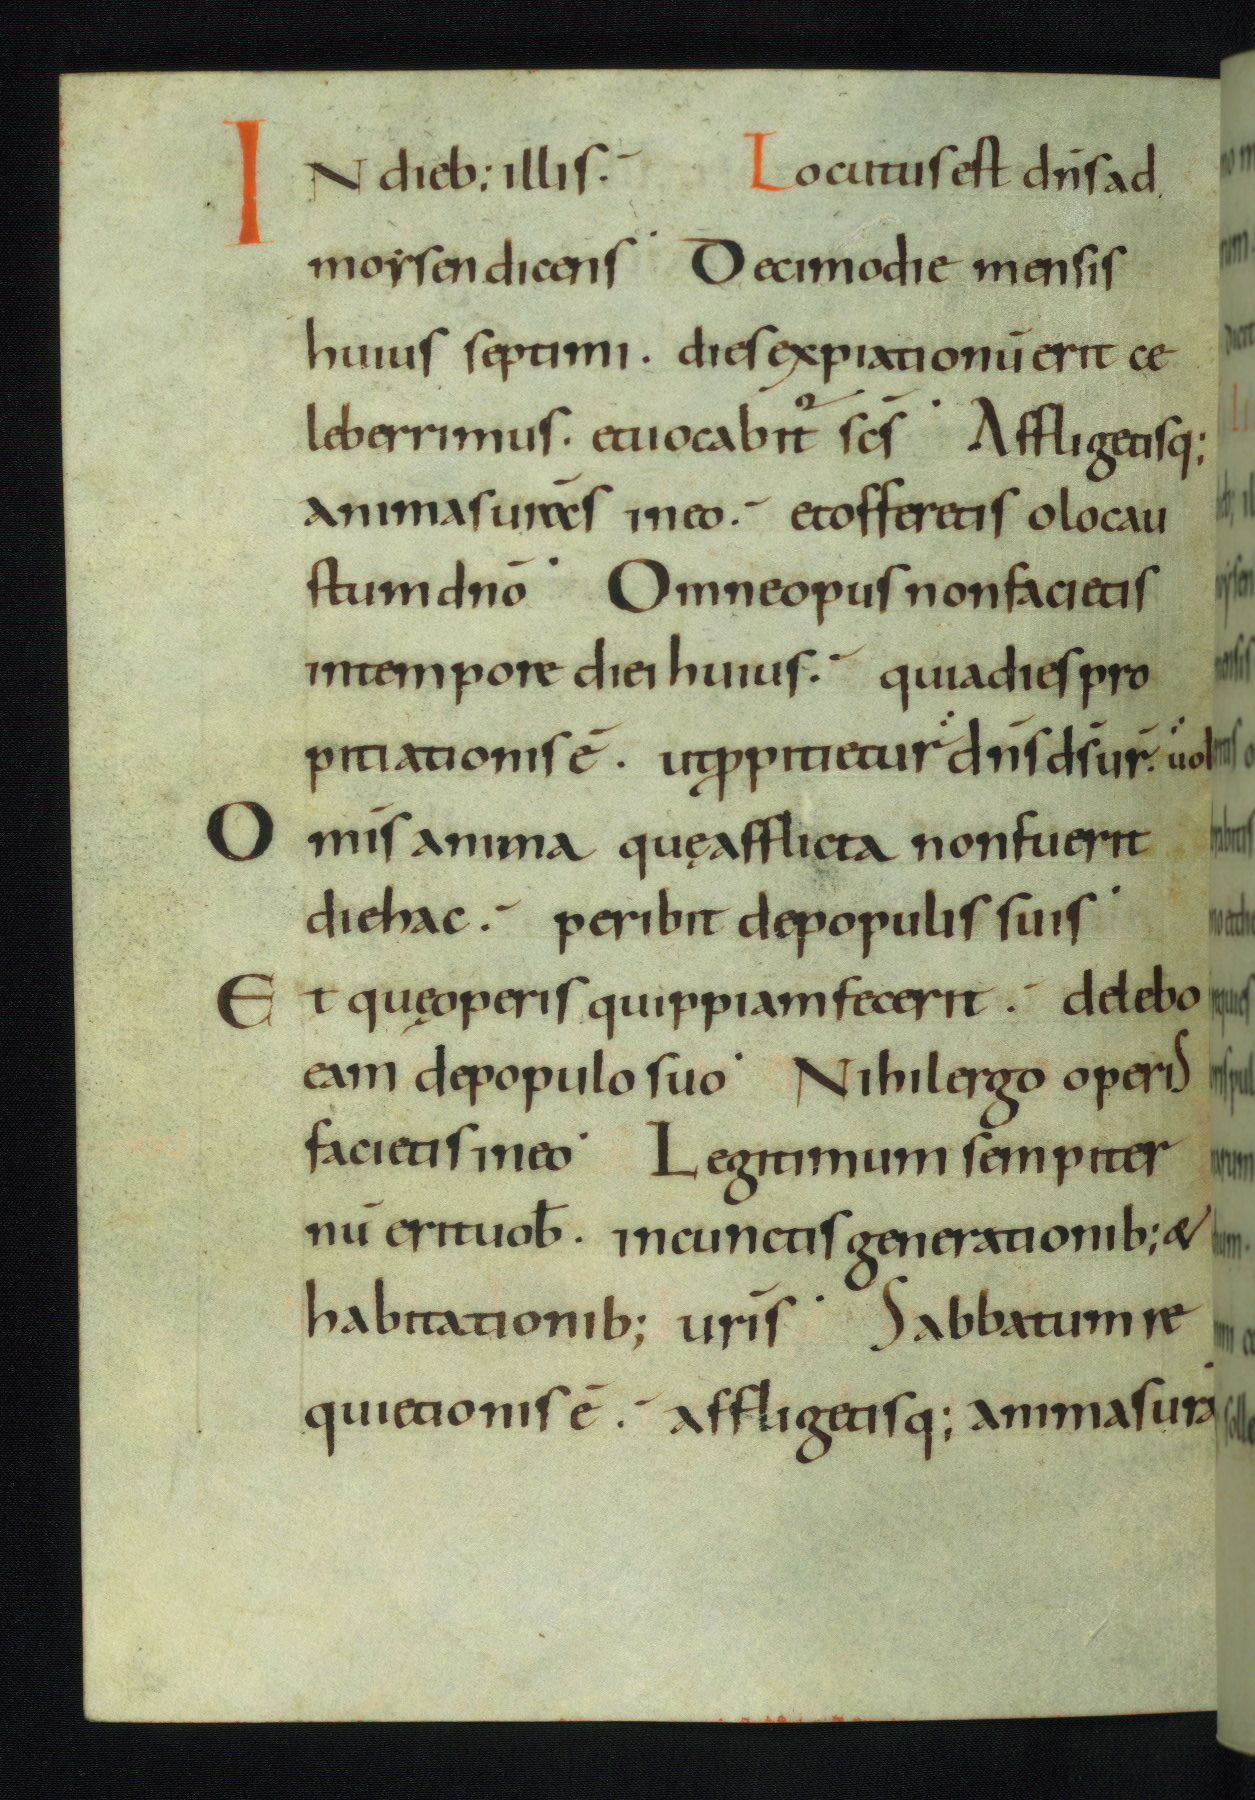 IN dieb; illis. Locutus est dn̄s ad
moẏsen dicens Decimo die mensis
huius septimi. dies expiationū erit ce
leberrimus. et uocabit᷑ sc̄s Affligetisq;
animas ur̄as in eo. et offeretis olocau
stum dn̄o Omne opus non facietis
in tempore diei huius. quia dies pro
pitiationis ē. ut ꝓpitietur dn̄s ds̄ ur̄. uob
Om̄is anima quę afflicta non fuerit
die hac. peribit de populis suis
Et quę operis quippiam fecerit. delebo
eam de populo suo Nihil ergo operis
facietis in eo Legitimum sempiter
nū erit uob̄. in cunctis generationib; &
habitationib; ur̄is Sabbatum re
quietionis ē. affligetisq; animas ur̄a